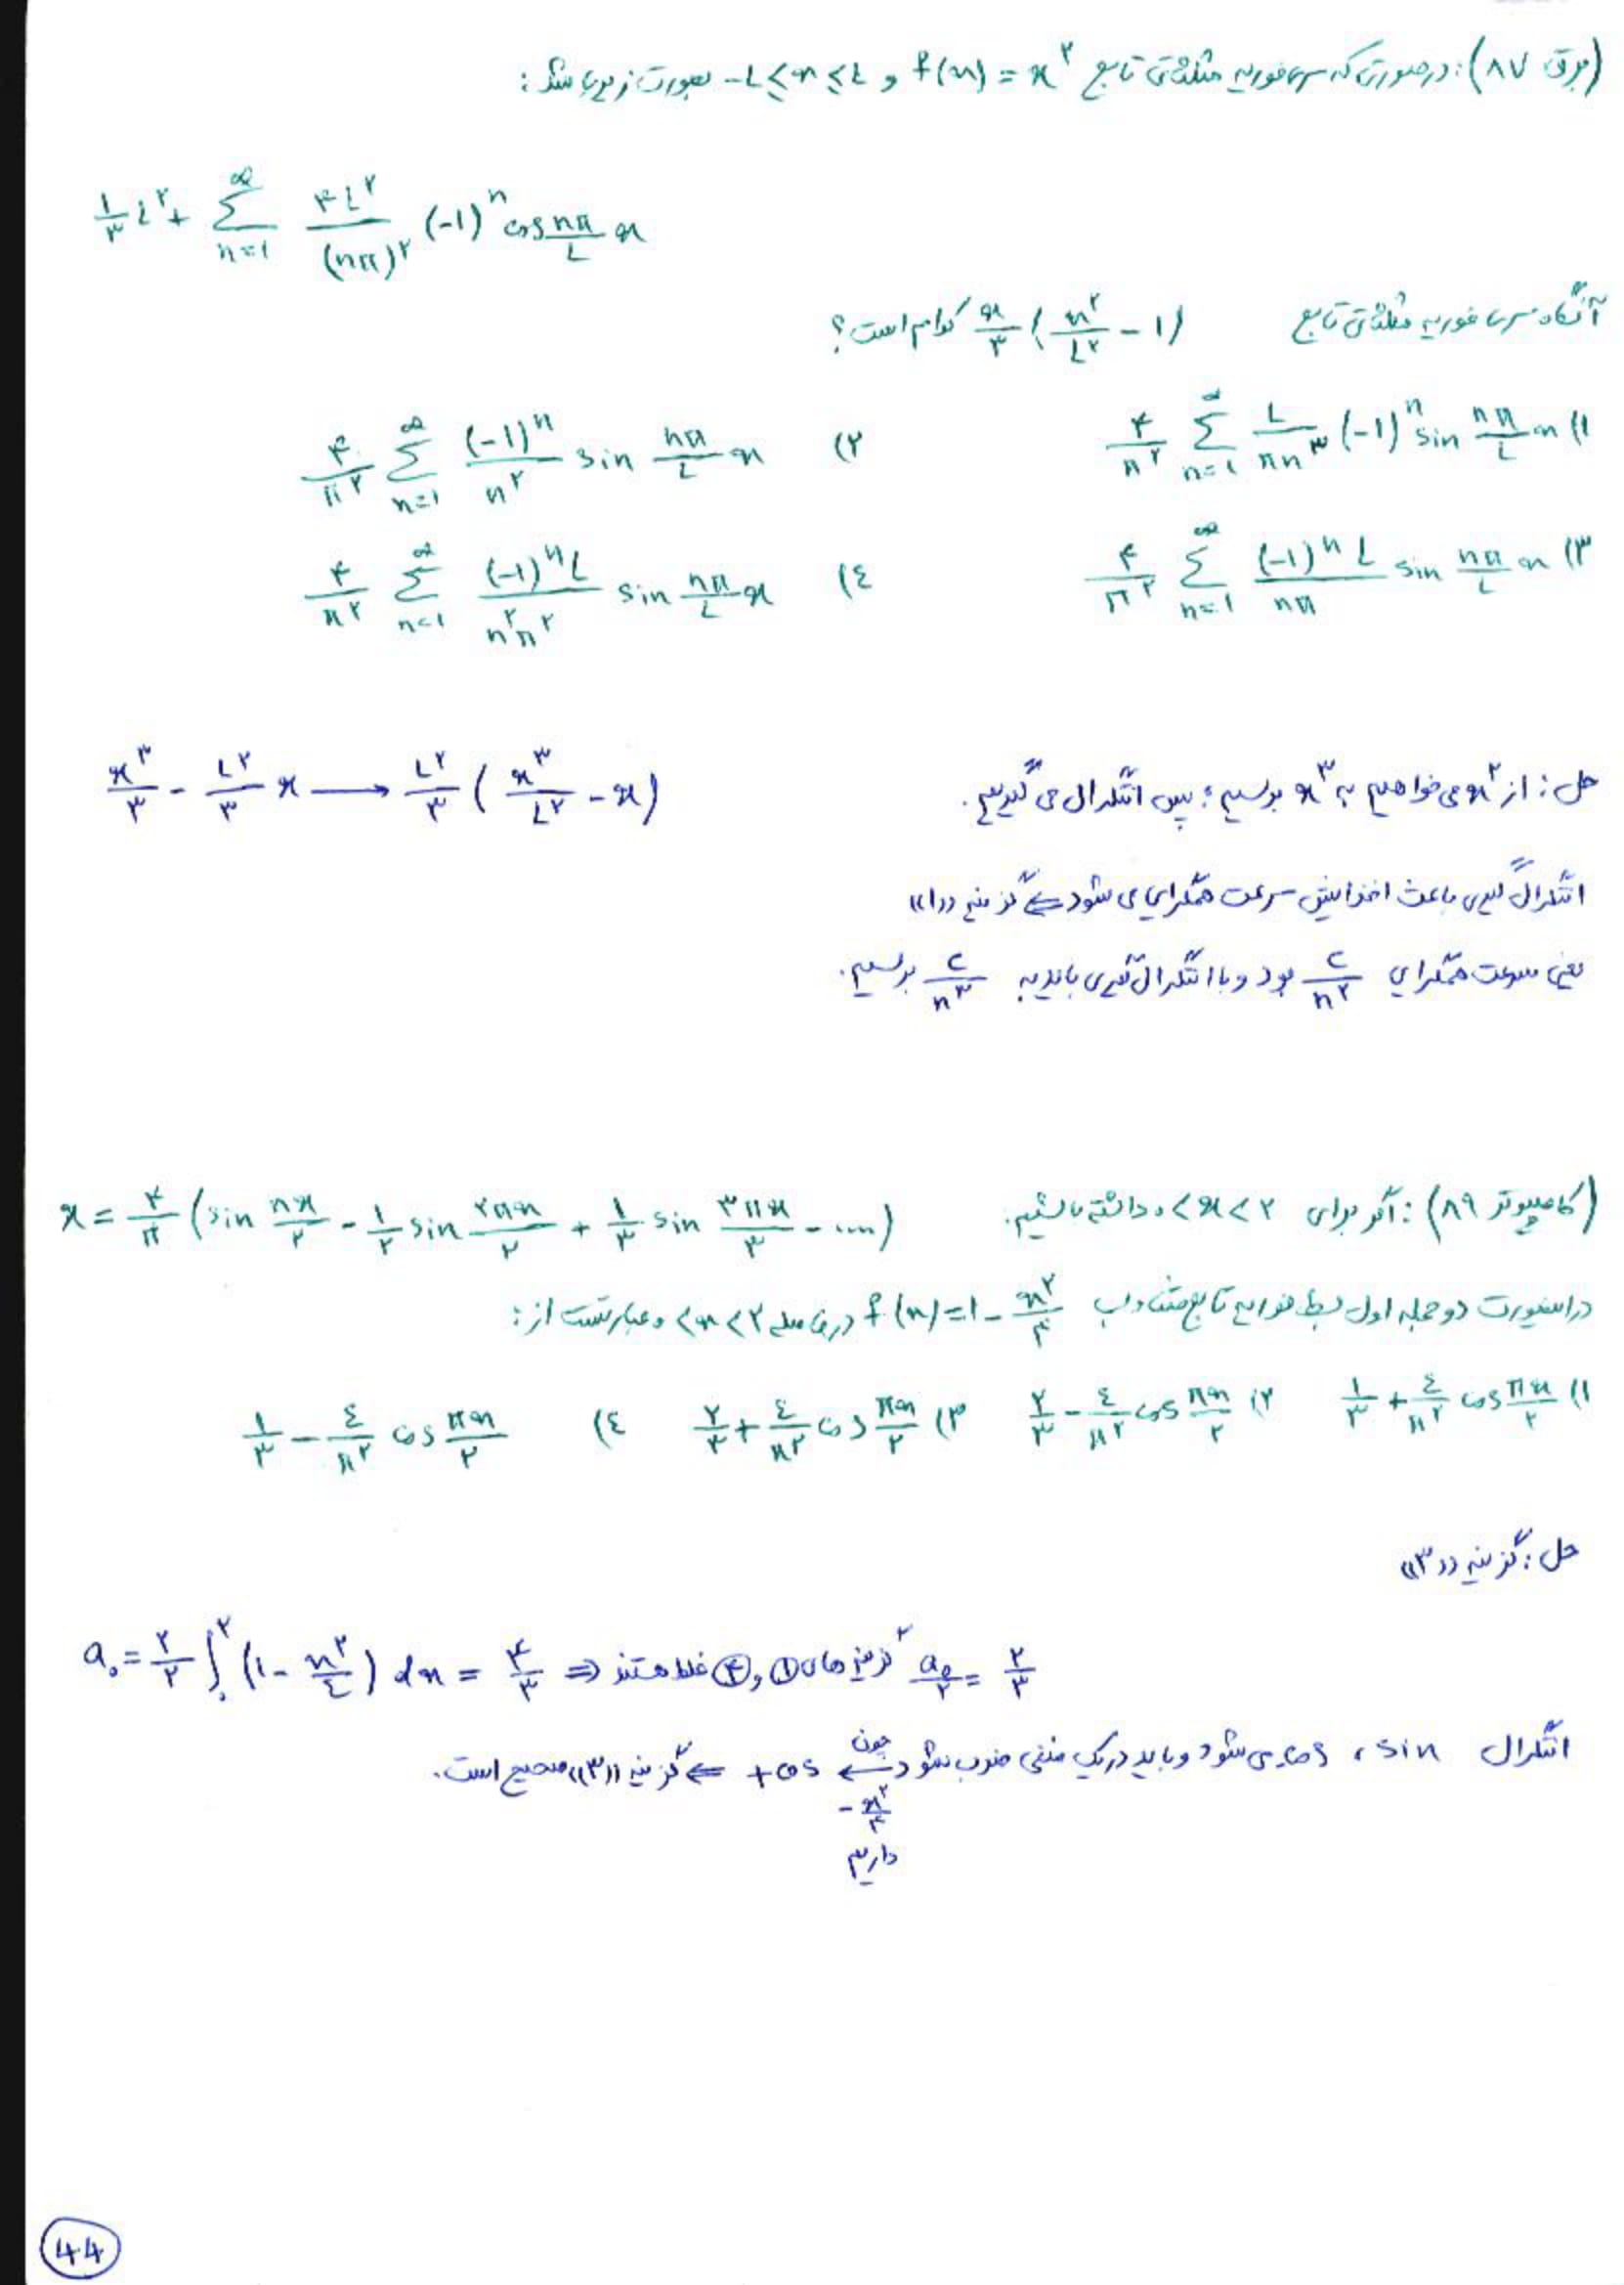 (برق ۸۷): در صورتی که سری فوریه مثلثاتی تابع f(x) = x^۲ و -L ≤ x ≤ L بصورت زیر باشد:
\frac{۱}{۳}L^۲ + \sum_{n=1}^{∞} \frac{۴L^۲}{(nπ)^۲} (-1)^n cos \frac{nπ}{L} x
آنگاه سری فوریه مثلثاتی تابع \frac{x}{۳}(\frac{x^۲}{L^۲} - 1) کدام است؟
۱) \frac{۴}{π^۲} \sum_{n=1}^{∞} \frac{L}{πn^۳} (-1)^n sin \frac{nπ}{L} x   ۲) \frac{۴}{π^۲} \sum_{n=1}^{∞} \frac{(-1)^n}{n^۲} sin \frac{nπ}{L} x
۳) \frac{۴}{π^۲} \sum_{n=1}^{∞} \frac{(-1)^n L}{nπ} sin \frac{nπ}{L} x   ٤) \frac{۴}{π^۲} \sum_{n=1}^{∞} \frac{(-1)^n L}{n^۲π^۲} sin \frac{nπ}{L} x
حل: از x^۲ می خواهیم به x^۳ برسیم؛ پس انتگرال می گیریم. \frac{x^۳}{۳} - \frac{L^۲}{۳} x ⟶ \frac{L^۲}{۳} (\frac{x^۳}{L^۲} - x)
انتگرال گیری باعث افزایش سرعت همگرایی می شود ⇐ گزینه «۱»
یعنی سرعت همگرایی \frac{c}{n^۲} بود و با انتگرال گیری باید به \frac{c}{n^۳} برسیم.
(کامپیوتر ۸۹): اگر برای ۰ < x < ۲ داشته باشیم: x = \frac{۴}{π} (sin \frac{πx}{۲} - \frac{۱}{۲} sin \frac{۲πx}{۲} + \frac{۱}{۳} sin \frac{۳πx}{۳} - ....)
در اینصورت دو جمله اول بسط فوریه تابع متناوب f(x) = 1 - \frac{x^۲}{۴} در فاصله ۰ < x < ۲ عبارتست از:
۱) \frac{۱}{۳} + \frac{٤}{π^۲} cos \frac{πx}{۲}   ۲) \frac{۲}{۳} - \frac{٤}{π^۲} cos \frac{πx}{۲}   ۳) \frac{۲}{۳} + \frac{٤}{π^۲} cos \frac{πx}{۲}   ٤) \frac{۱}{۳} - \frac{٤}{π^۲} cos \frac{πx}{۲}
حل: گزینه «۳»
a_۰ = \frac{۲}{۲} \int_۰^۲ (1 - \frac{x^۲}{٤}) dx = \frac{۴}{۳} ⇒ گزینه های ① و ④ غلط هستند \frac{a_۰}{۲} = \frac{۲}{۳}
انتگرال sin ، -cos می شود و باید در یک منفی ضرب شود ⟵ چون -\frac{x^۲}{۴} داریم +cos ⇐ گزینه «۳» صحیح است.
44